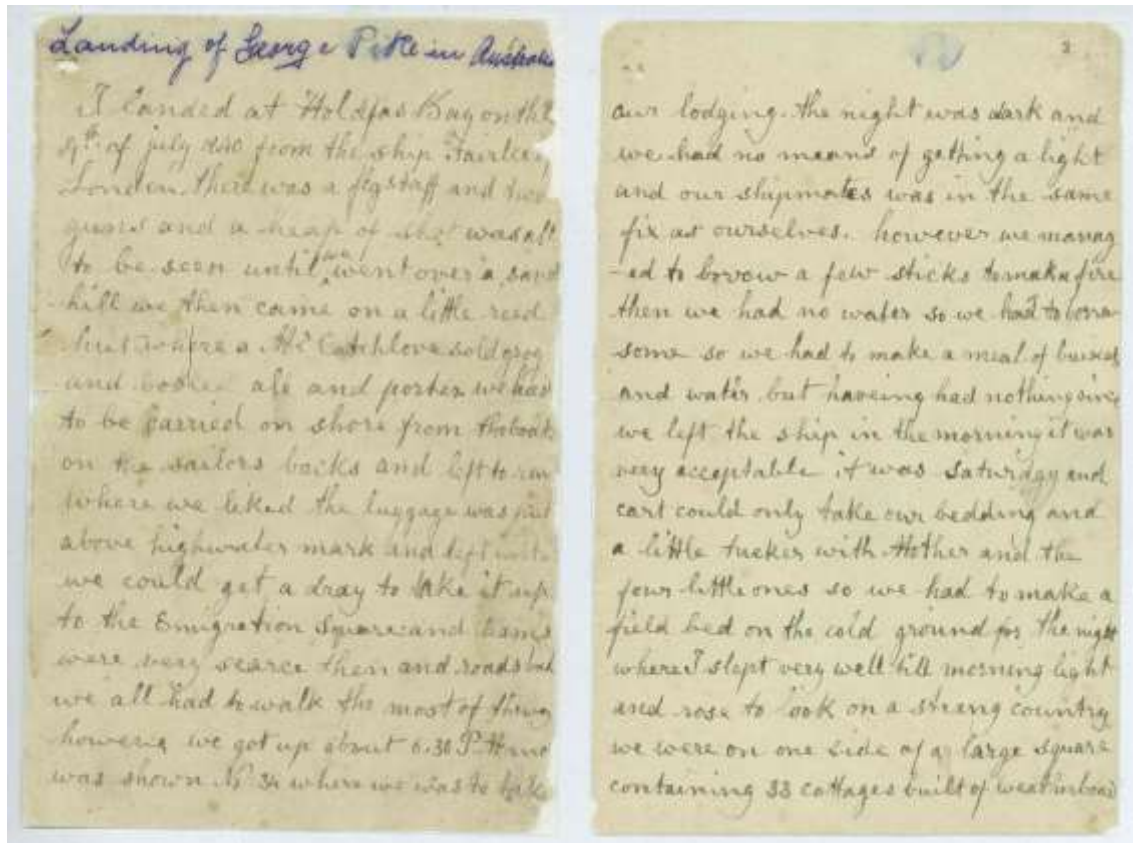 Landing of George Pike in Australia
I landed at Holdfas Bay on the
of july 1840 from the ship Fairlee
London there was a flgstaff and two
guns and a heap of shot was all
to be seen until we went over a sand
hill we then came on a little reed
hut where a Mr Catchlove sold grog
and ale and porter we had
to be carried on shore from the boats
on the sailors backs and left to run
where we liked the luggage was put
above highwater mark and left until
we could get a dray to take it up
to the Emigration Square and teams
were very scarce then and roads bad
we all had to walk the most of the way
however we got up about 6.30 P.M and
was shown No 34 where we was to take
2
our lodging. the night was dark and
we had no means of getting a light
and our shipmates was in the same
fix as ourselves. however we manag
-ed to borrow a few sticks to make fire
then we had no water so we had to borrow
some so we had to make a meal of
and water but haveing had nothing since
we left the ship in the morning it was
very acceptable it was Saturday and
cart could only take our bedding and
a little tucker with Mother and the
four little ones so we had to make a
field bed on the cold ground for the night
where I slept very well till morning light
and rose to look on a strang country
we were on one side of a large square
containing 33 cottages built of weatherboard